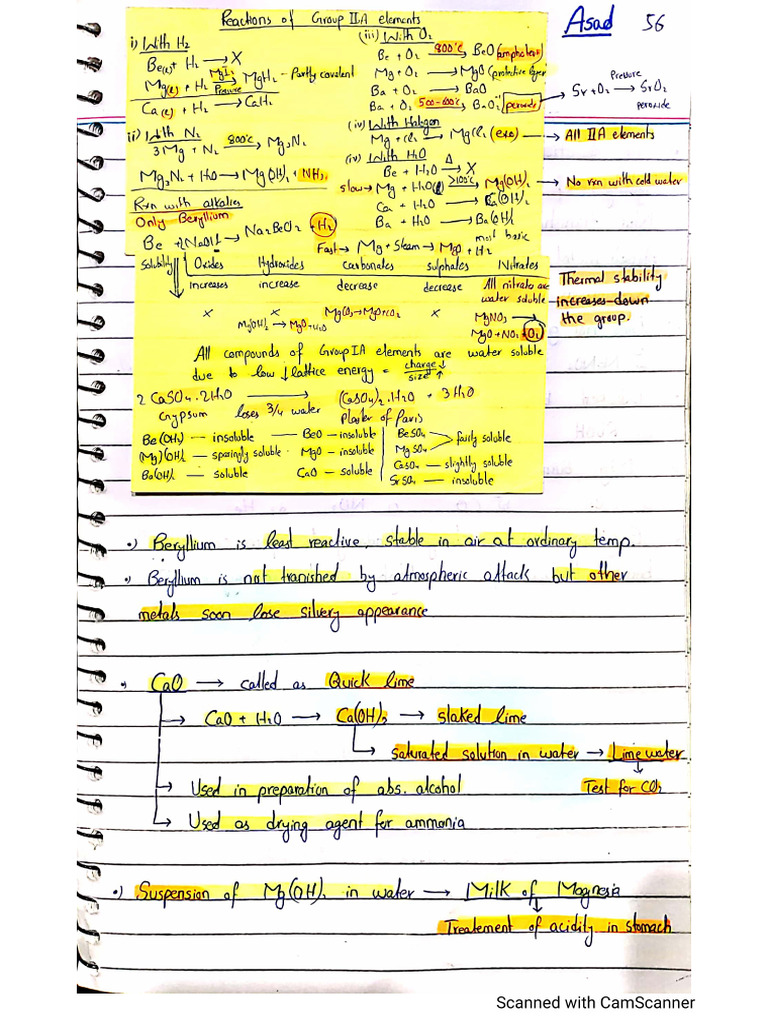 Reactions of Group IIA elements
Asad 56
i) With H₂
Be(s) + H₂ → X
Mg(s) + H₂ MgI₂ → Pressure MgH₂ - Partly covalent
Ca(s) + H₂ → CaH₂
ii) With N₂
3Mg + N₂ 800°C → Mg₃N₂
Mg₃N₂ + H₂O → Mg(OH)₂ + NH₃
Rxn with alkalies
Only Beryllium
Be + 2NaOH → Na₂BeO₂ + H₂
(iii) With O₂
Be + O₂ 800°C → BeO (amphoteric)
Mg + O₂ → MgO (protective layer)
Ba + O₂ → BaO
Ba + O₂ 500-600°C → BaO₂⁻¹ peroxide → Sr + O₂ Pressure → SrO₂ peroxide
(iv) With Halogen
Mg + Cl₂ → MgCl₂ (exo) → All IIA elements
(iv) With H₂O
Be + H₂O Δ → X
slow → Mg + H₂O(l) >100°C → Mg(OH)₂ → No rxn with cold water
Ca + H₂O → Ca(OH)₂
Ba + H₂O → Ba(OH)₂ most basic
Fast → Mg + Steam → MgO + H₂
Solubility Oxides Hydroxides Carbonates sulphates Nitrates
increases increase decrease decrease All nitrate are water soluble
Thermal stability
increases down
the group.
X X MgCO₃ → MgO + CO₂ X MgNO₃ →
Mg(OH)₂ → MgO + H₂O MgO + NO₂ + O₂
All compounds of Group IA elements are water soluble
due to low ↓ lattice energy = charge↓ / size↑
2 CaSO₄.2H₂O → (CaSO₄)₂.H₂O + 3H₂O
Gypsum loses 3/4 water Plaster of Paris
Be(OH)₂ — insoluble — BeO — insoluble BeSO₄
(Mg)(OH)₂ — sparingly soluble MgO — insoluble MgSO₄ fairly soluble
Ba(OH)₂ — soluble CaO — soluble CaSO₄ — slightly soluble
SrSO₄ — insoluble
•) Beryllium is least reactive, stable in air at ordinary temp.
•) Beryllium is not tranished by atmospheric attack but other
metals soon lose silvery appearance
•) CaO → called as Quick lime
→ CaO + H₂O → Ca(OH)₂ → slaked lime
→ saturated solution in water → Lime water
→ Used in preparation of abs. alcohol Test for CO₂
→ Used as drying agent for ammonia
•) Suspension of Mg(OH)₂ in water → Milk of Magnesia
Treatement of acidity in stomach
Scanned with CamScanner